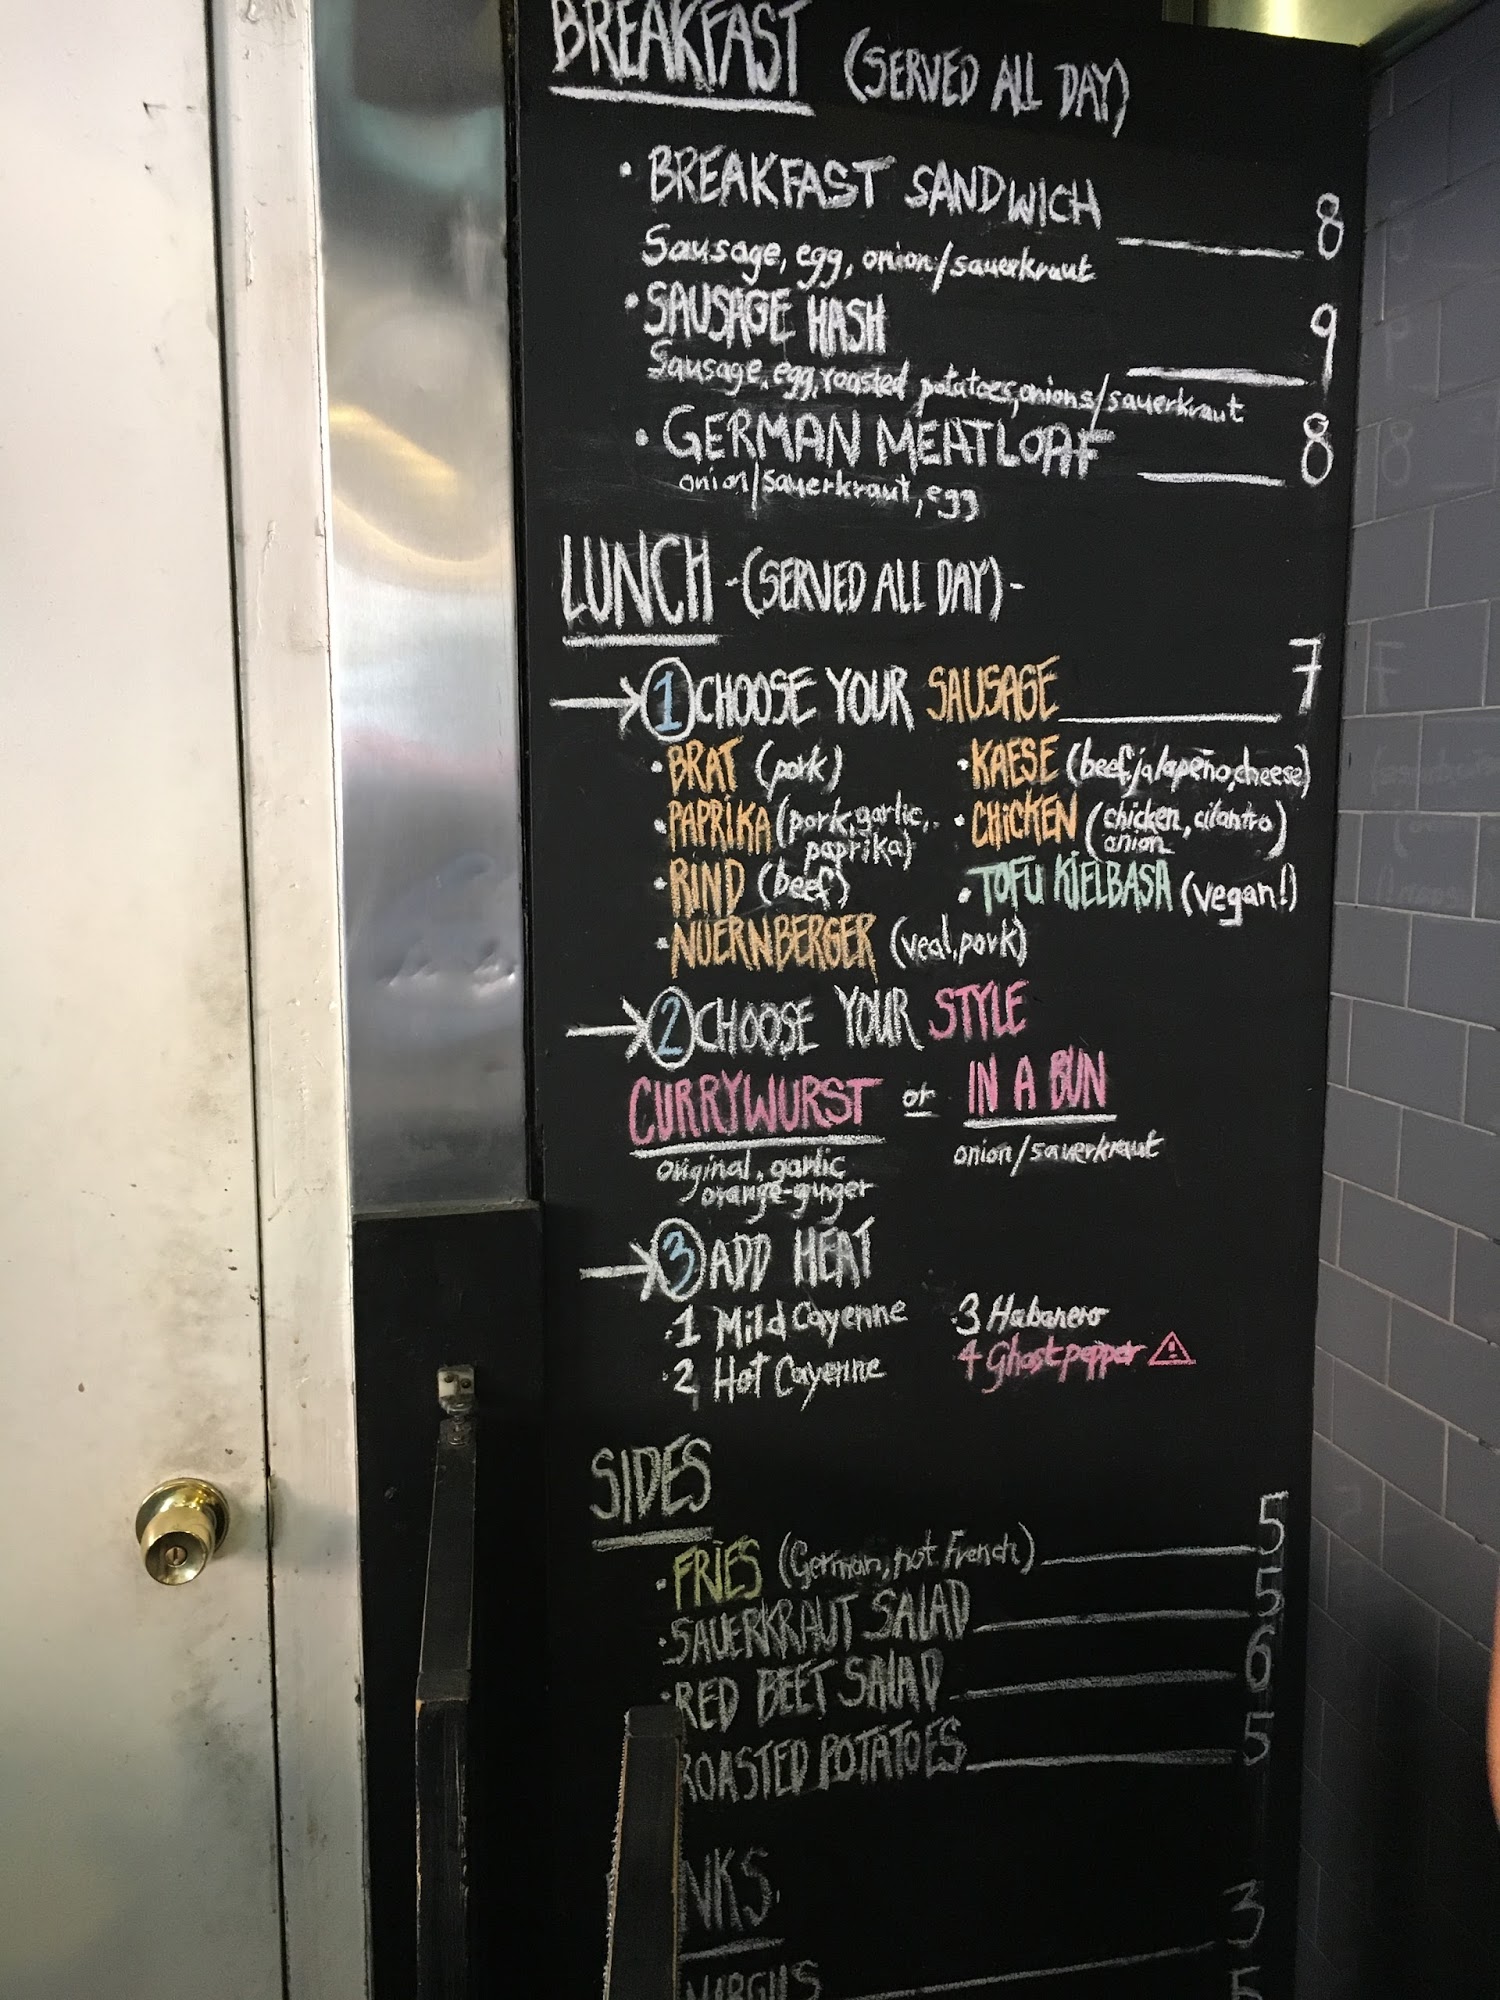 BREAKFAST (SERVED ALL DAY)
• BREAKFAST SANDWICH 8
Sausage, egg, onion/sauerkraut
• SAUSAGE HASH 9
Sausage, egg, roasted potatoes, onions/sauerkraut
• GERMAN MEATLOAF 8
onion/sauerkraut, egg
LUNCH -(SERVED ALL DAY)-
1 CHOOSE YOUR SAUSAGE 7
• BRAT (pork)
• PAPRIKA (pork, garlic,
paprika)
• RIND (beef)
• NUERNBERGER (veal, pork)
• KAESE (beef, jalapeño, cheese)
• CHICKEN (chicken, cilantro
onion)
• TOFU KIELBASA (vegan!)
2 CHOOSE YOUR STYLE
CURRYWURST or IN A BUN
original, garlic
orange-ginger
onion/sauerkraut
3 ADD HEAT
• 1 Mild Cayenne
• 2 Hot Cayenne
• 3 Habanero
• 4 Ghostpepper
SIDES
• FRIES (German, not French) 5
• SAUERKRAUT SALAD 5
• RED BEET SALAD 6
ROASTED POTATOES 5
NKS
3
5